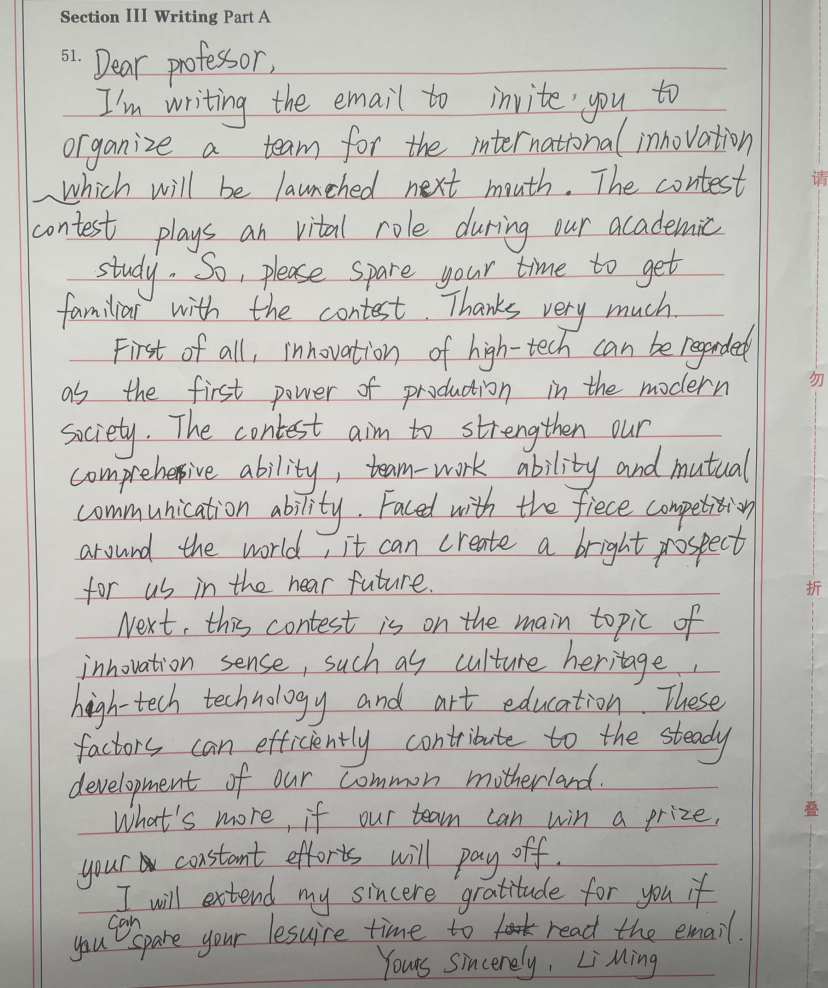 Section III Writing Part A
51. Dear professor,
I'm writing the email to invite you to
organize a team for the international innovation
which will be launched next month. The contest
contest plays an vital role during our academic
study. So, please spare your time to get
familiar with the contest. Thanks very much.
First of all, innovation of high-tech can be regarded
as the first power of production in the modern
society. The contest aim to strengthen our
comprehensive ability, team-work ability and mutual
communication ability. Faced with the fiece competition
around the world, it can create a bright prospect
for us in the near future.
Next, this contest is on the main topic of
innovation sense, such as culture heritage,
high-tech technology and art education. These
factors can efficiently contribute to the steady
development of our common motherland.
What's more, if our team can win a prize,
your constant efforts will pay off.
I will extend my sincere gratitude for you if
you can spare your lesuire time to read the email.
Yours Sincerely, Li Ming
请
勿
折
叠